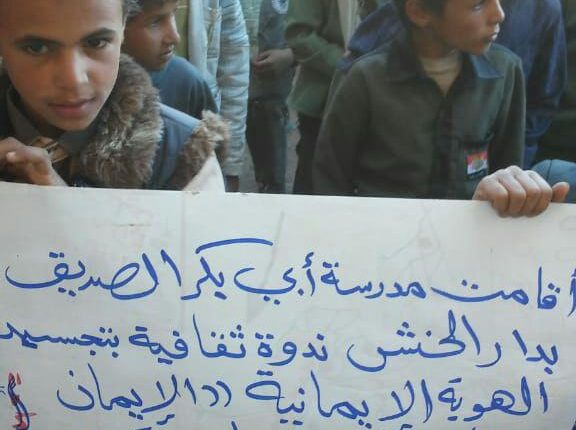 أقامت مدرسة أبي بكر الصديق
بدار الخنش ندوة ثقافية بتجسيد
الهوية الإيمانية ((الإيمان